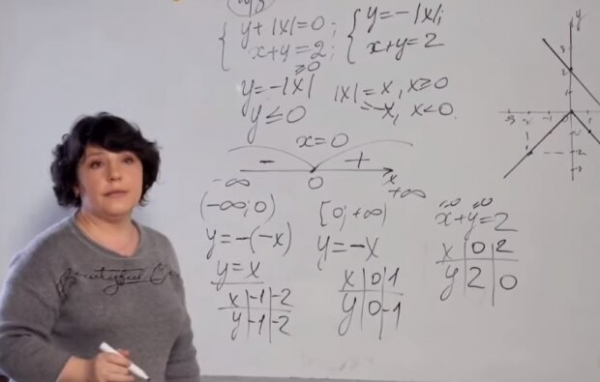 { y+|x|=0;
x+y=2;
{ y=-|x|;
x+y=2
≥0
y=-|x|
y≤0
|x|=x, x≥0
=-x, x<0.
x=0
- +
-∞ 0 x +∞
(-∞;0)
y=-(-x)
y=x
x | -1 | -2
y | -1 | -2
[0;+∞)
y=-x
x | 0 | 1
y | 0 | -1
x+y=2
x | 0 | 2
y | 2 | 0
y